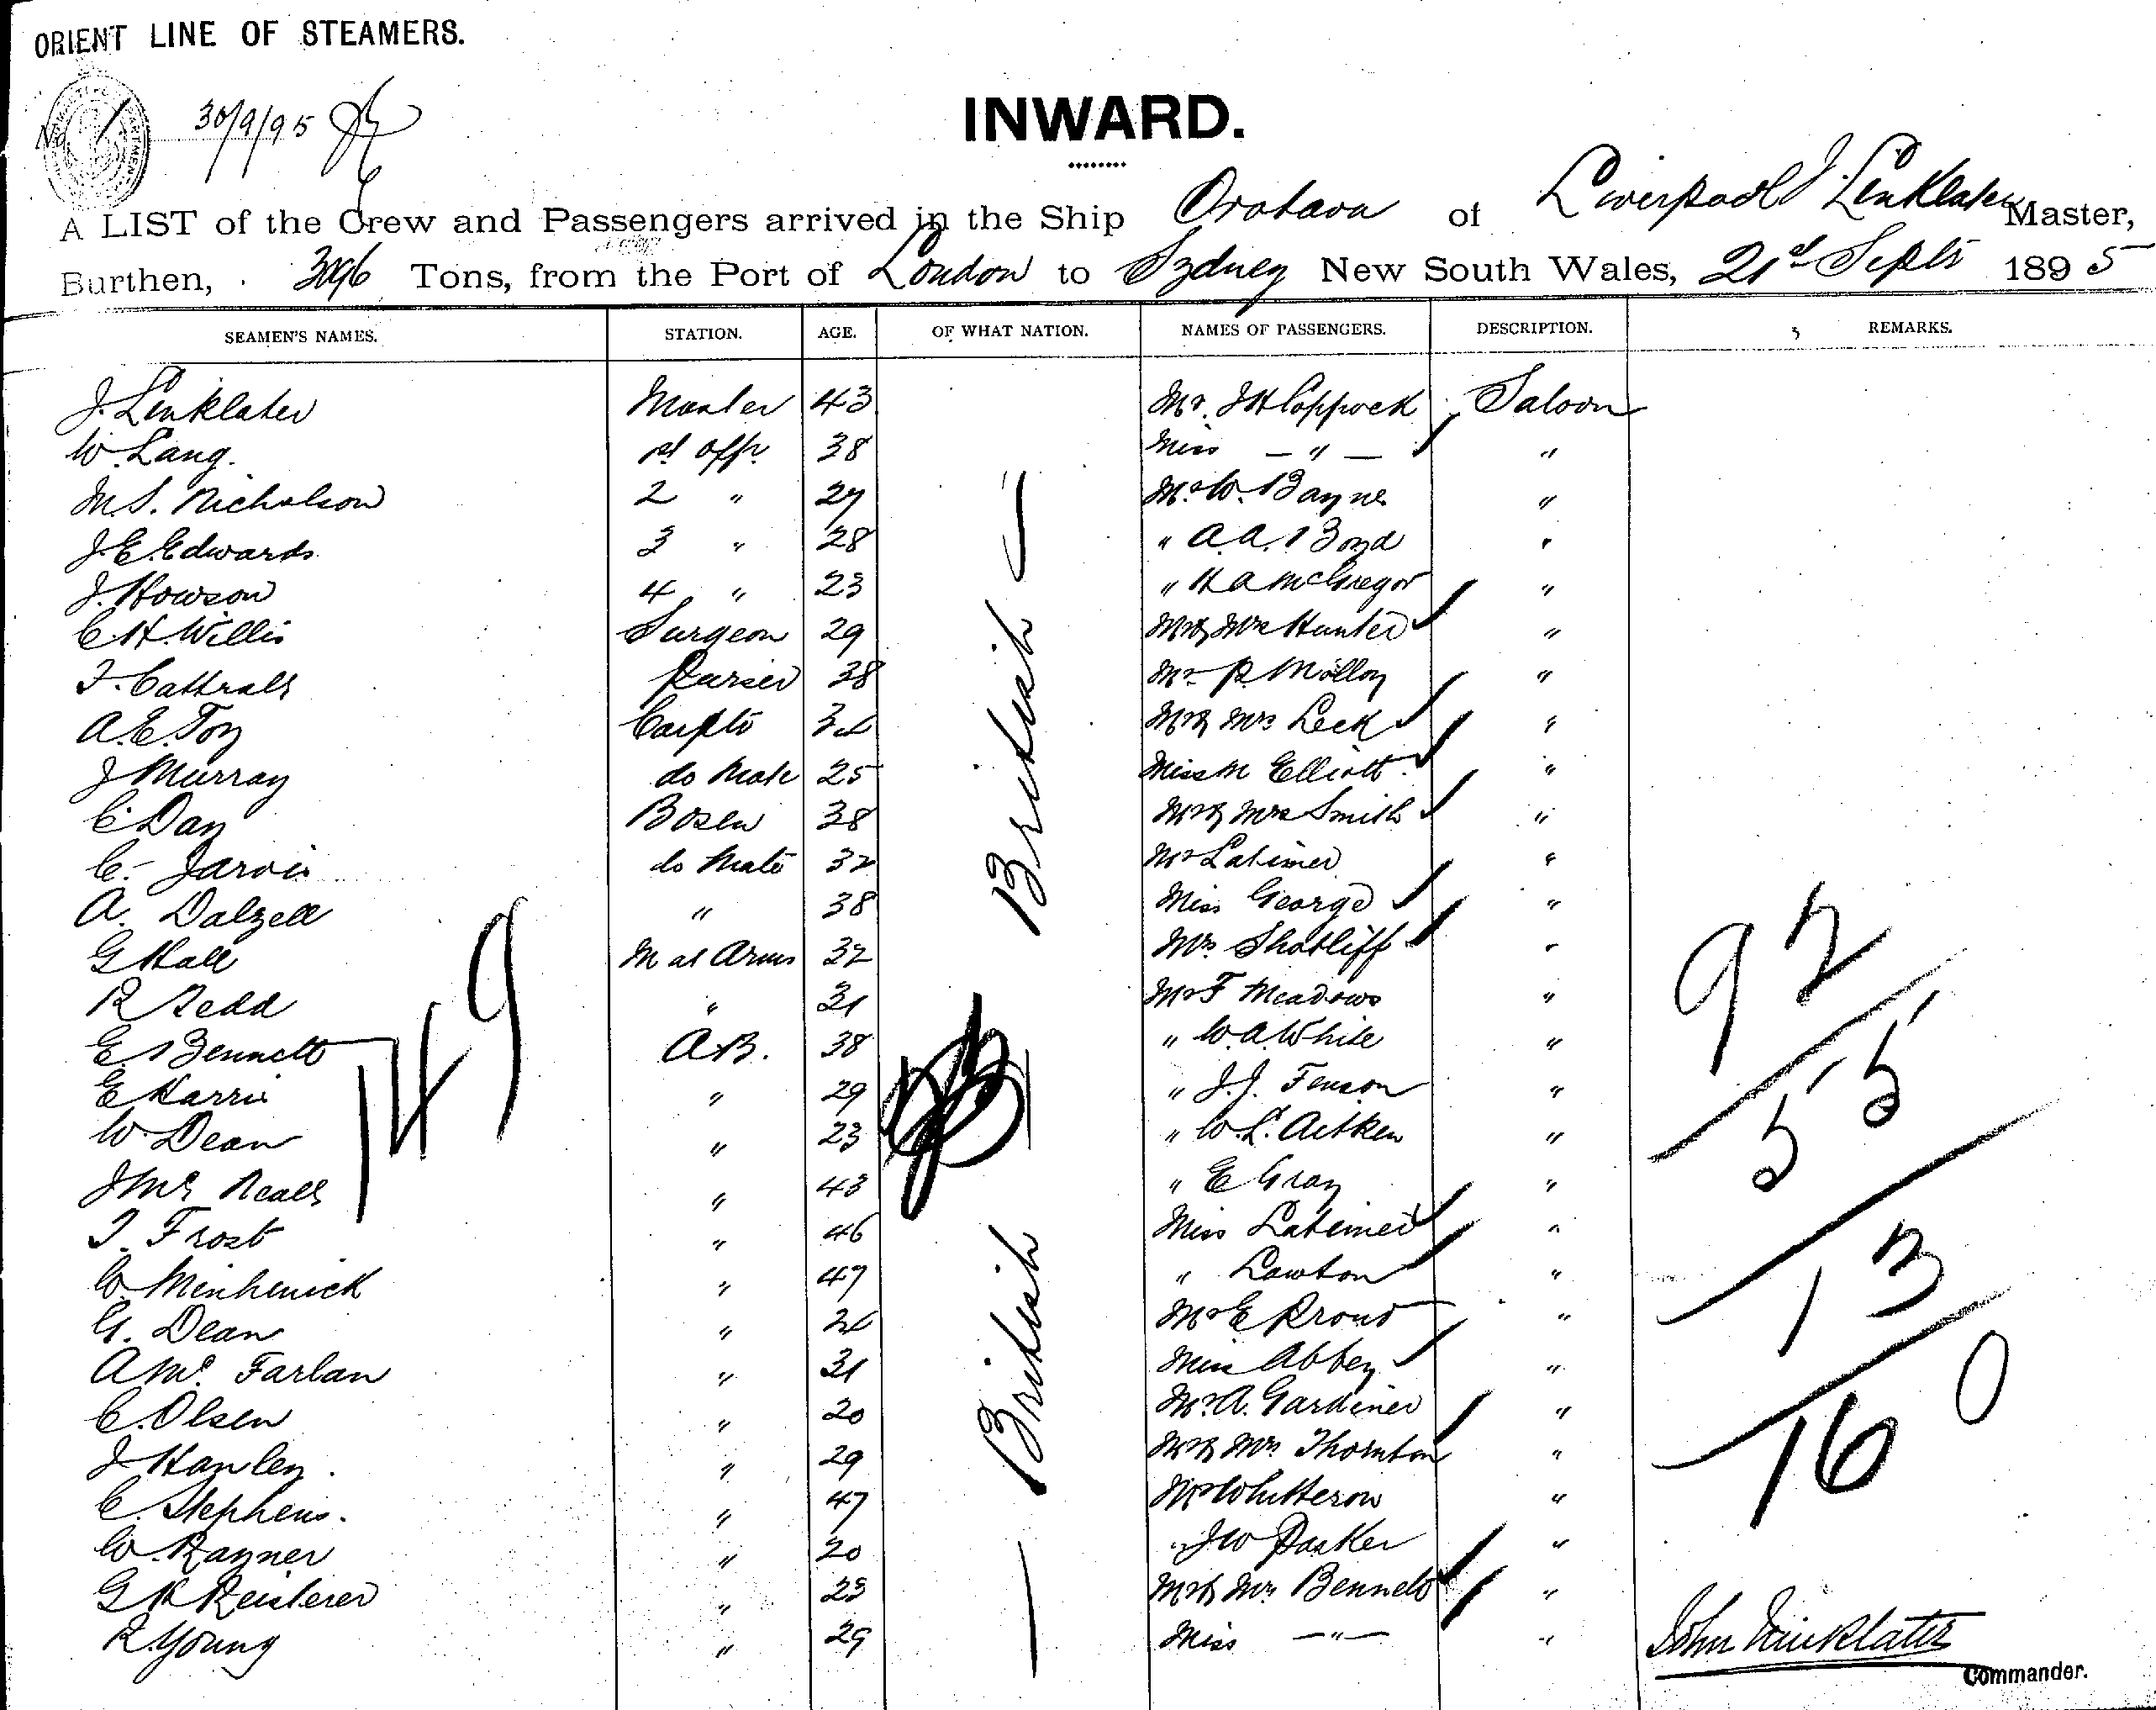 ORIENT LINE OF STEAMERS.
No 1 30/9/95
INWARD.
A LIST of the Crew and Passengers arrived in the Ship Orotava of Liverpool J Linklater Master,
Burthen, 3096 Tons, from the Port of London to Sydney New South Wales, 21st Septr 1895
SEAMEN'S NAMES. STATION. AGE. OF WHAT NATION. NAMES OF PASSENGERS. DESCRIPTION. REMARKS.
J. Linklater Master 43 Mr. J H Coppock Saloon
W. Lang. 1st Offr. 38 Miss — " — "
M.S. Nicholson 2 " 27 Mr W. Bayne "
J.E. Edwards 3 " 28 " A.A. Boyd "
J. Howson 4 " 23 " H A McGregor "
C.H. Willis Surgeon 29 Mr & Mrs Hunter "
T. Cattrall Purser 38 Mr P. Molloy "
A.E. Toy Carptr 34 Mr & Mrs Leck "
J Murray do Mate 25 Miss M Elliott "
C. Day Bosen 38 Mr & Mrs Smith "
C. Jarvis do Mate 32 Mr Latimer "
A. Dalzell " 38 Miss George "
G Hall M at Arms 32 Mrs Shotliff "
R Redd " 31 Mr F Meadows "
E. Bennett A.B. 38 " W.A. White "
E Harris " 29 " J.J. Fenson "
W. Dean " 23 " W.L. Aitken "
J Mc Neall " 43 " E Gray "
T. Frost " 46 Miss Latimer "
W. Minhenick " 47 " Lawton "
G. Dean " 24 Mr E Prout "
A Mc Farlan " 31 Miss Abbey "
C. Olsen " 20 Mr A. Gardiner "
J Hanley. " 29 Mr & Mrs Thornton "
C. Stephens. " 47 Mr Whitteron "
W. Rayner " 20 " J W Parker "
G H Reisterer " 23 Mr & Mrs Bennett "
R Young " 29 Miss — " — "
British
British
149
92
55
13
160
John Linklater
Commander.